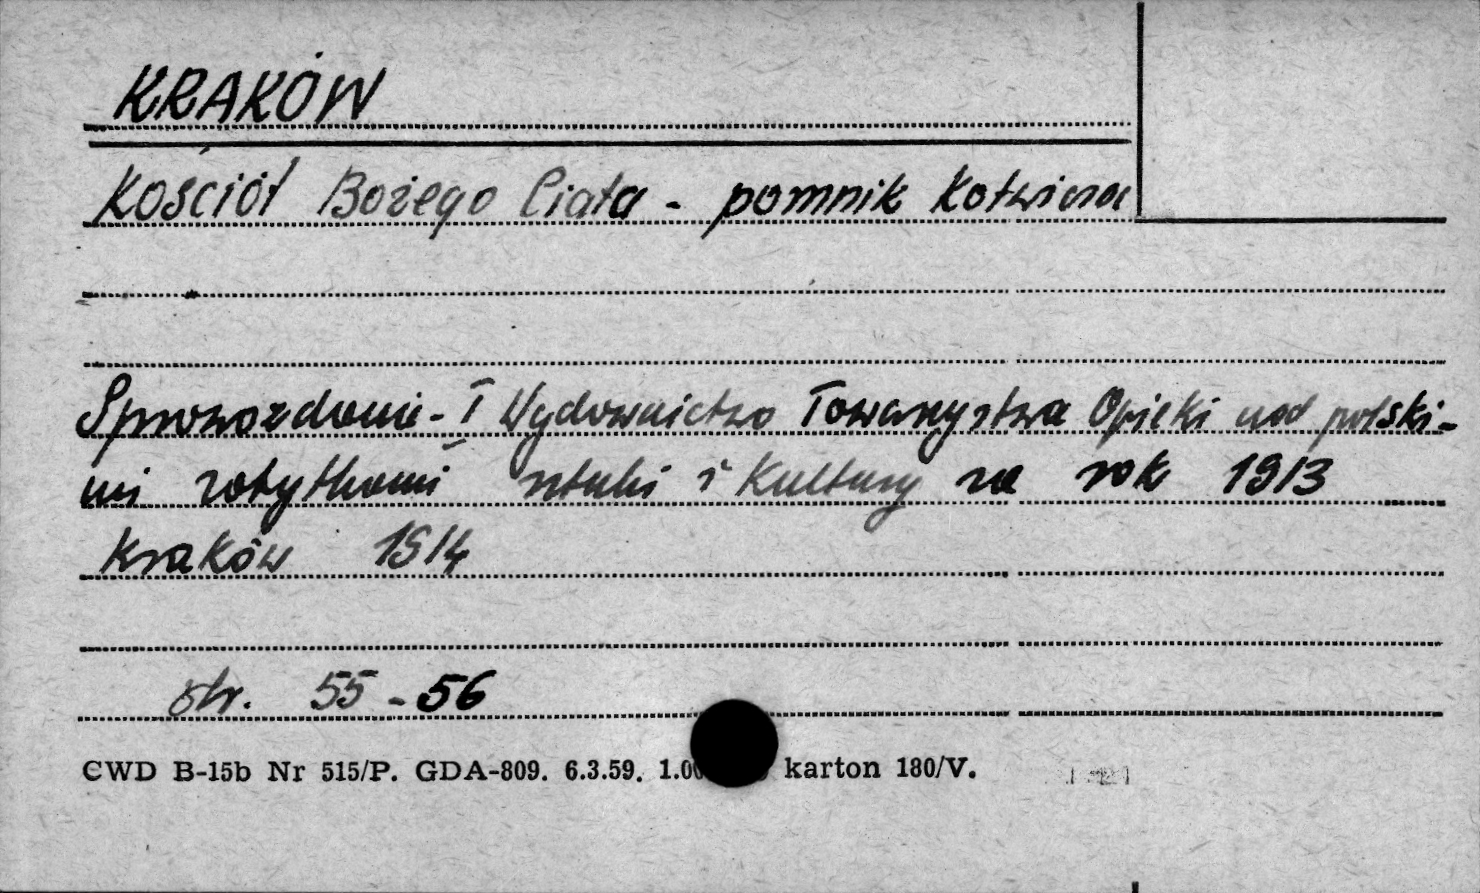 KRAKÓW
Kościół Bożego Ciała - pomnik Kotwicza
Sprawozdanie - I Wydawnictwo Towarzystwa Opieki nad polski-
mi zabytkami sztuki i Kultury za rok 1913
Kraków 1914
str. 55 - 56
CWD B-15b Nr 515/P. GDA-809. 6.3.59. 1.00 karton 180/V.